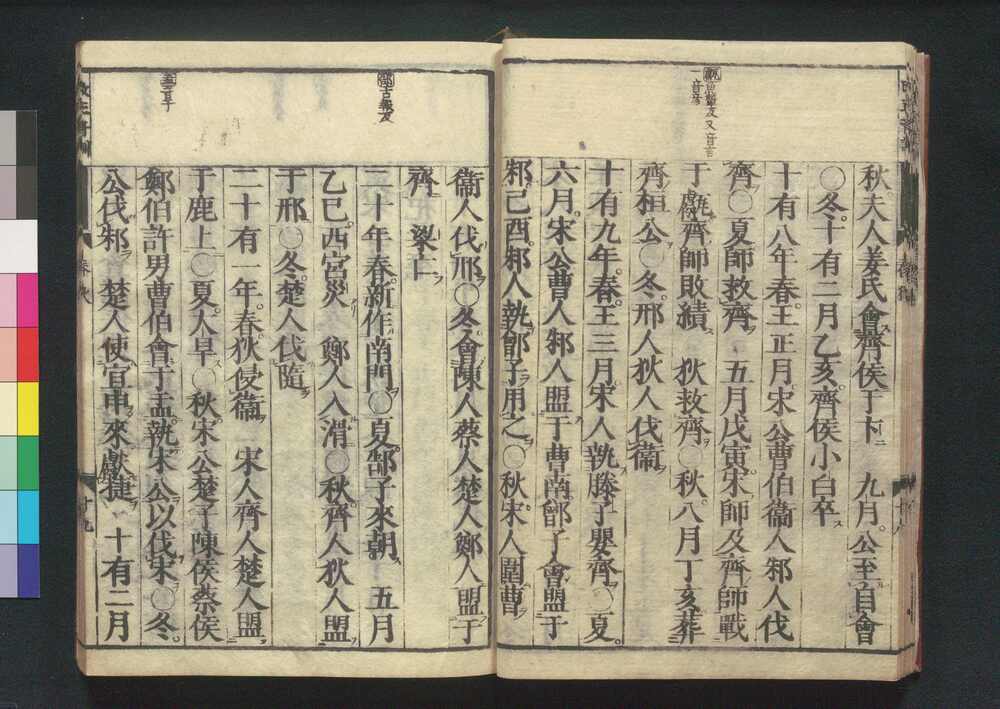 秋夫人姜氏會齊侯于卞　九月公至自會
○冬十有二月乙亥齊侯小白卒
十有八年春王正月宋公曹伯衞人邾人伐
齊○夏師救齊　五月戊寅宋師及齊師戰
于甗齊師敗績　狄救齊○秋八月丁亥葬
齊桓公○冬邢人狄人伐衞
十有九年春王三月宋人執滕子嬰齊○夏
六月宋公曹人邾人盟于曹南鄫子會盟于
邾己酉邾人執鄫子用之○秋宋人圍曹
衞人伐邢○冬會陳人蔡人楚人鄭人盟于
齊　梁亡
二十年春新作南門○夏郜子來朝　五月
乙巳西宮災　鄭人入滑○秋齊人狄人盟
于邢○冬楚人伐隨
二十有一年春狄侵衞　宋人齊人楚人盟
于鹿上○夏大旱○秋宋公楚子陳侯蔡侯
鄭伯許男曹伯會于盂執宋公以伐宋○冬
公伐邾　楚人使宜申來獻捷　十有二月
郜古報反
盂音于
春秋
十九